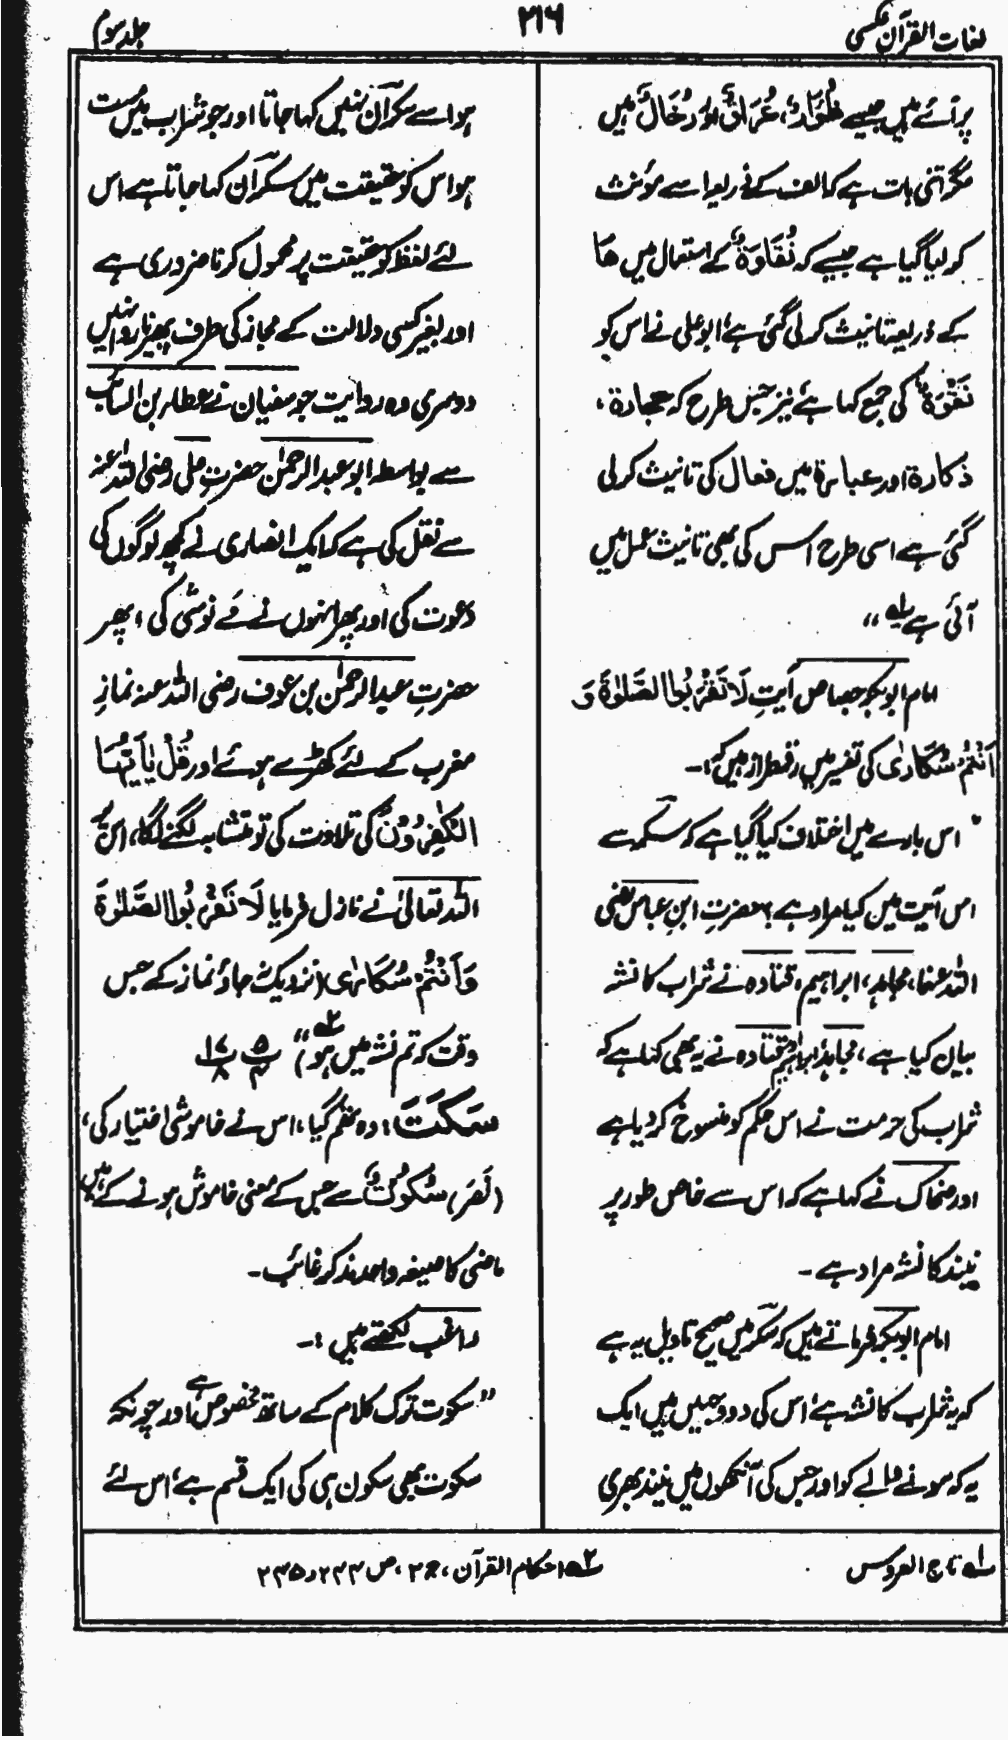 لغات القرآن عکسی
۲۱۶
جلد سوم
پر آئے ہیں جیسے ظُؤَارٌ، عُرَاقٌ اور رُخَالٌ ہیں
مگر اتنی بات ہے کہ الف کے ذریعہ اسے مؤنث
کر لیا گیا ہے جیسے کہ نُقَاوَةٌ کے استعمال میں ھَا
کے ذریعہ تانیث کر لی گئی ہے، ابو علی نے اس کو
نَقْوَةٌ کی جمع کہا ہے نیز جس طرح کہ حجارۃ،
ذکارۃ اور عبارۃ میں فعال کی تانیث کر لی
گئی ہے اسی طرح اس کی بھی تانیث عمل میں
آئی ہے؂۱ ،،
امام ابوبکر جصاص آیتِ لَا تَقْرَبُوا الصَّلٰوةَ وَ
اَنْتُمْ سُكَارٰى کی تفسیر میں رقمطراز ہیں کہ:۔
" اس بارے میں اختلاف کیا گیا ہے کہ سکر سے
اس آیت میں کیا مراد ہے؟ حضرتِ ابنِ عباس رضی
اللہ عنہا، مجاہد، ابراہیم، قتادہ نے شراب کا نشہ
بیان کیا ہے، مجاہد، ابراہیم، قتادہ نے یہ بھی کہا ہے کہ
شراب کی حرمت نے اس حکم کو منسوخ کر دیا ہے
اور ضحاک نے کہا ہے کہ اس سے خاص طور پر
نیند کا نشہ مراد ہے ۔
امام ابوبکر فرماتے ہیں کہ سکر میں صحیح تاویل یہ ہے
کہ یہ شراب کا نشہ ہے، اس کی دو وجہیں ہیں ایک
یہ کہ سونے والے کو اور جس کی آنکھوں میں نیند بھری
ہو اسے سکرآن نہیں کہا جاتا اور جو شراب میں مست
ہو اس کو حقیقت میں سکرآن کہا جاتا ہے اس
لئے لفظ کو حقیقت پر محمول کرنا ضروری ہے
اور بغیر کسی دلالت کے مجاز کی طرف پھیرنا روا نہیں
دوسری وہ روایت جو سفیان نے عطاء بن السائب
سے بواسطہ ابو عبدالرحمٰن حضرتِ علی رضی اللہ عنہ
سے نقل کی ہے کہ ایک انصاری نے کچھ لوگوں کی
دعوت کی اور پھر انہوں نے مے نوشی کی، پھر
حضرتِ عبدالرحمٰن بن عوف رضی اللہ عنہ نمازِ
مغرب کے لئے کھڑے ہوئے اور قُلْ يٰاَيُّهَا
الْكٰفِرُوْنَ کی تلاوت کی تو متشابہ لگنے لگا، اس پر
اللہ تعالیٰ نے نازل فرمایا لَا تَقْرَبُوا الصَّلٰوةَ
وَاَنْتُمْ سُكَارٰى (نزدیک نہ جاؤ نماز کے جس
وقت کہ تم نشہ میں ہو)"؂۲ پ۵/۳ پ۱۷/۸
سَكَتَ: وہ تھم گیا، اس نے خاموشی اختیار کی،
(نَصَرَ) سُكُوْتٌ سے جس کے معنی خاموش ہونے کے ہیں
ماضی کا صیغہ واحد مذکر غائب ۔
راغب لکھتے ہیں :۔
" سکوت ترکِ کلام کے ساتھ مخصوص ہے اور چونکہ
سکوت بھی سکون ہی کی ایک قسم ہے، اس لئے
؂۱ تاج العروس
؂۲ احکام القرآن، ج ۲، ص ۲۴۴ و ۲۴۵